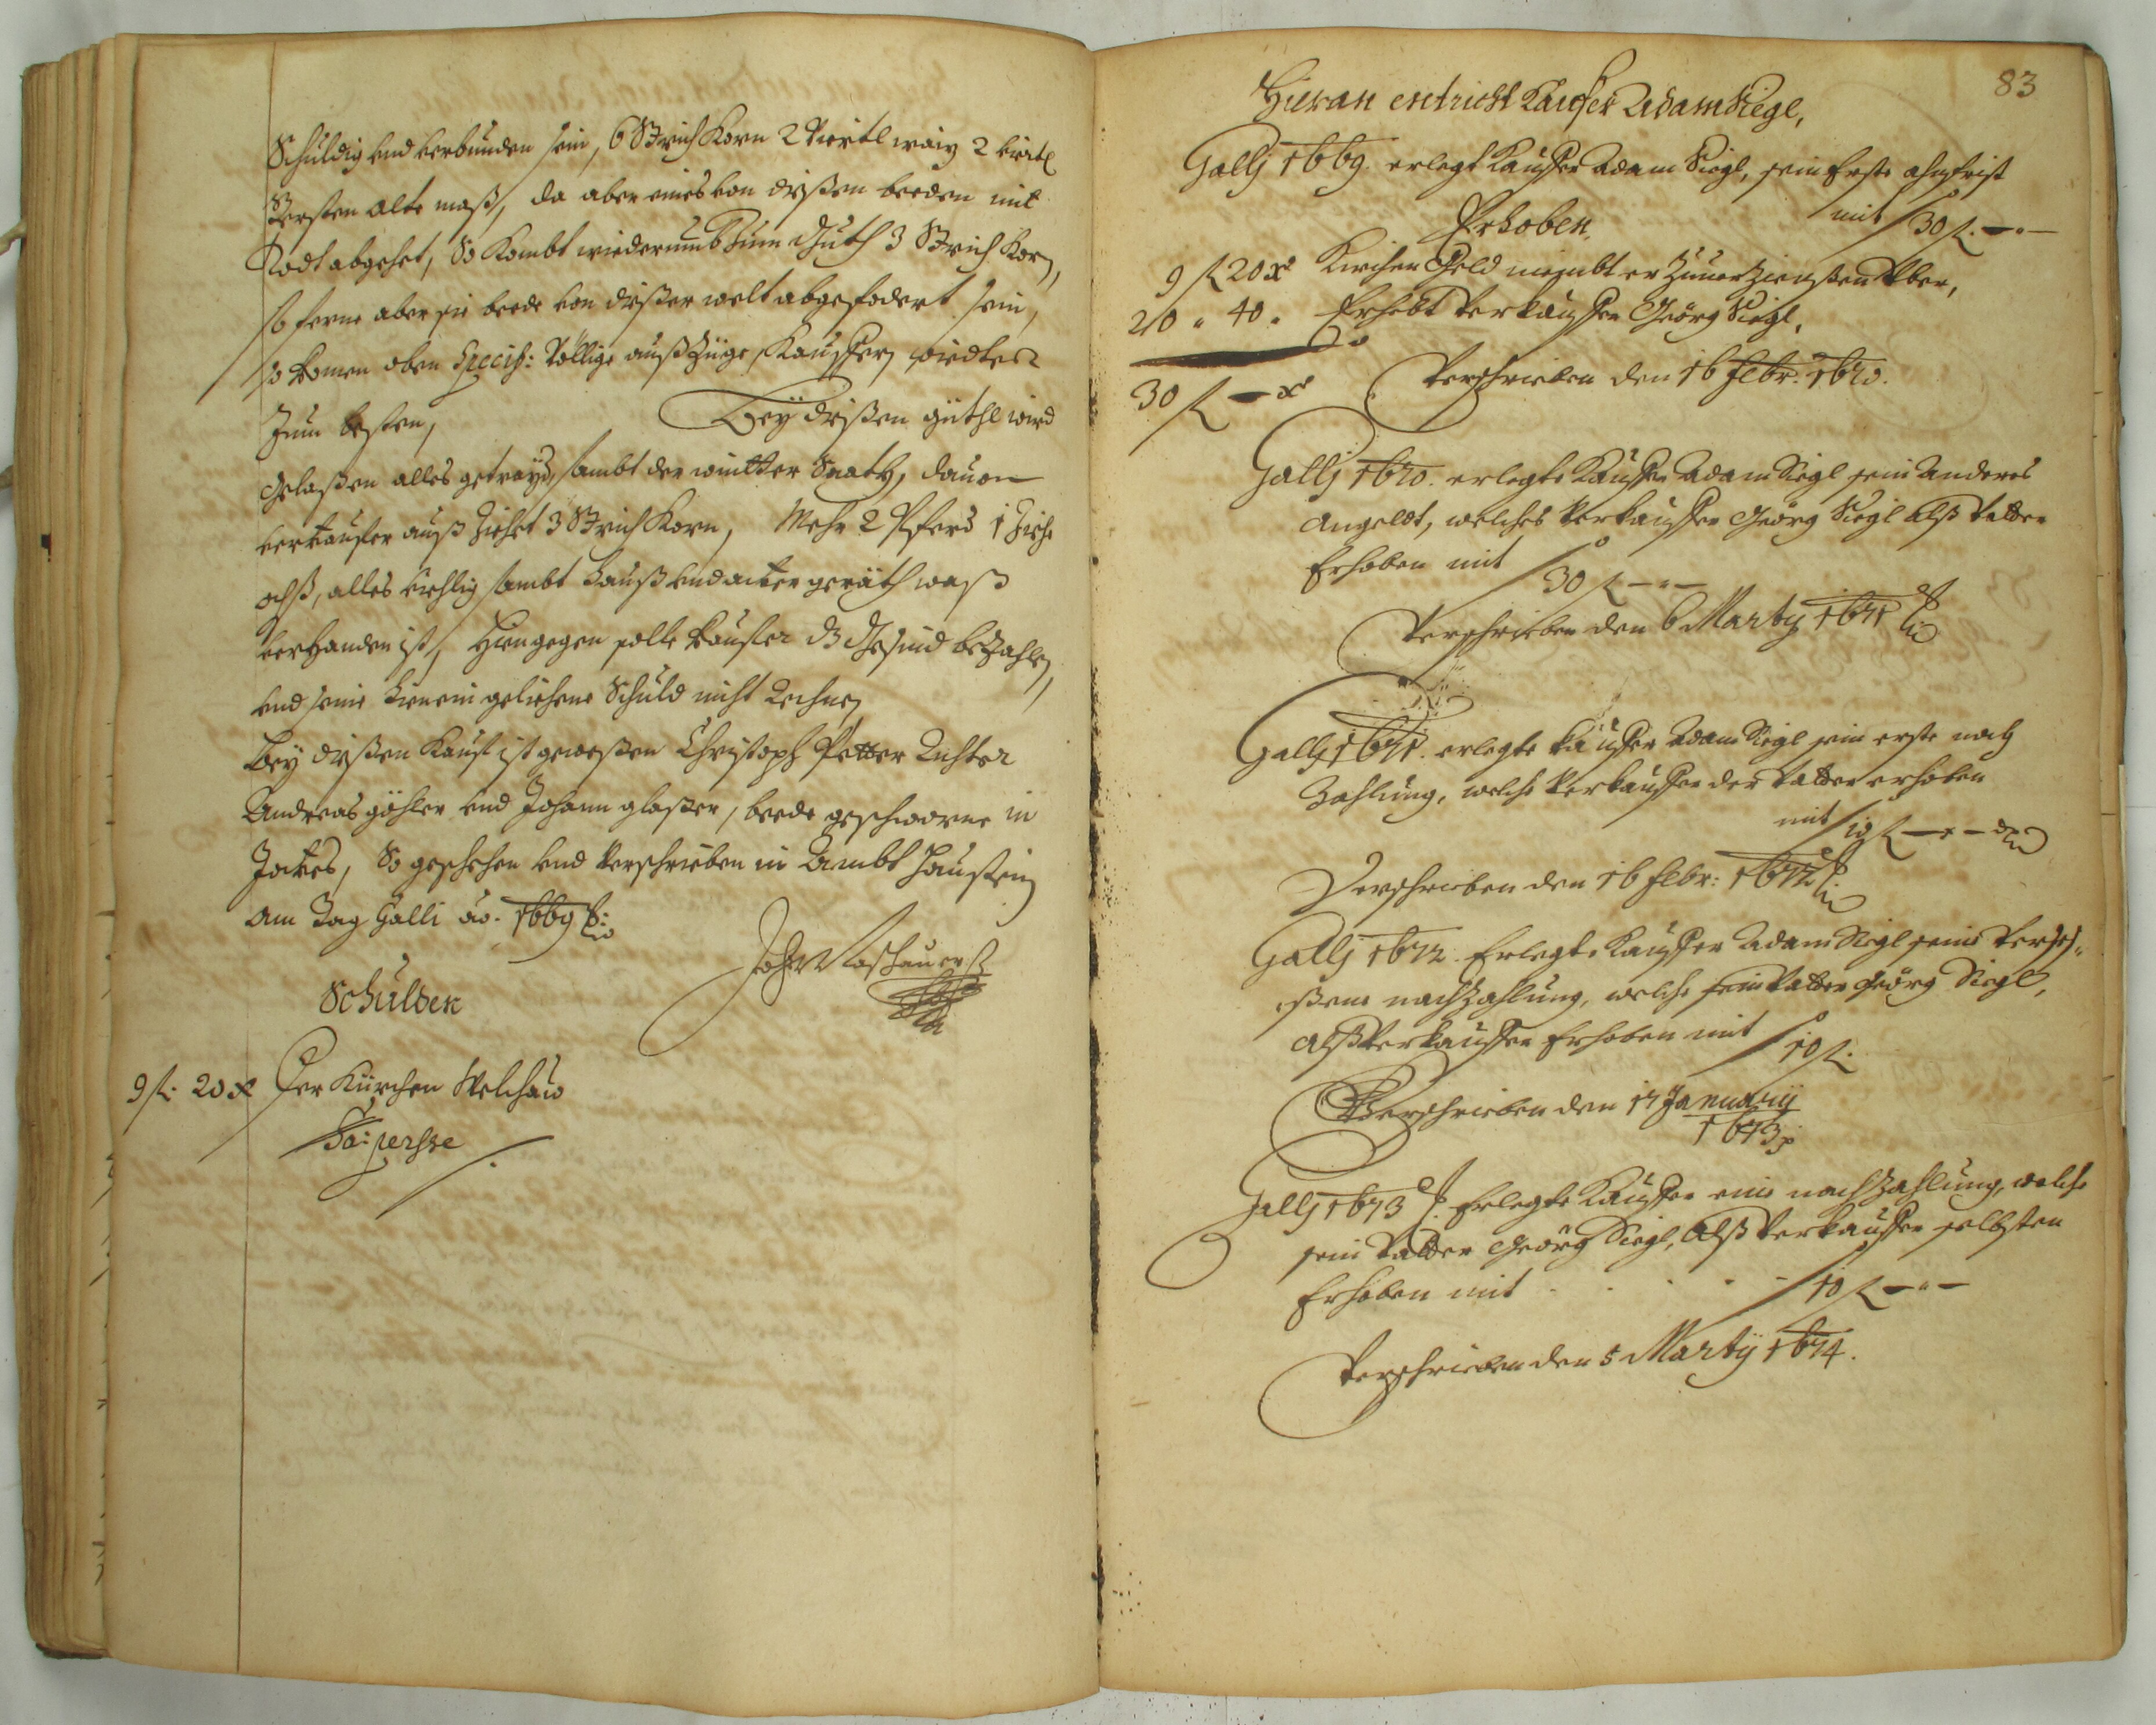 Schuldig vnd verbunden sein, 6 Strich Korn 2 Viertl waiz 2 virtl
Gersten alte maß, da aber eines von dißen beeden mit
Todt abgehet, So Kombt wiederumb Zum Guth 3 Strich Korn,
so ferne aber sie beede von dißer welt abgefodert sein,
so komen oben Specif: Völlige außzüge, Kauffern wieder
Zum besten,
Bey dißen güthl wird
gelaßen alles getrayd, sambt der wintter Saath, dauon
verkaufer auß Ziehet 3 Strich Korn, Mehr 2 Pferd 1 Zieh
ochß, alles sambt Hauß vnd acker geräth waß
verhanden ist, Hiengegen solle kaufer dz Gesind bezahlen,
vnd seine hienein geliehene Schuld nicht Rechnen
Bey dißen Kauf ist geweßen Christoph Petter Richter
Andreas göhler vnd Johann glaßer, beede geschworne in
Jokes, So geschehen vnd verschrieben in Ambt Haußtein
am Tag Galli ao. 1669
Schulden
9 f: 20 x Der Kürchen Welchau
83
Hieran entricht Kaufer Adam Siegl,
Gallj 1669. erlegt Kauffer Adam Siegl, sein Erste ahngfrist
mit 30 f. — " —
Erhoben,
9 f 20 x Kirchen Geld nimbt er Zuuerzienßen Vber,
20 " 40 " Erhebt verkauffer Geörg Siegl,
30 f — x Verschrieben den 16 Febr: 1670.
Gallj 1670. erlegte Kauffer Adam Siegl sein Anderes
Angeldt, welches Verkauffer Geörg Siegl alß Vatter
Erhoben mit 30 f — " —
Verschrieben den 6 Marty 1671
Gallj 1671. erlegte kauffer Adam Siegl sein erste nach
Zahlung, welche Verkauffer der Vatter erhoben
mit 10 f — " —
Verschrieben den 16 Febr: 1672
Gallj 1672. Erlegte Kauffer Adam Siegl seine
nachzahlung, welche sein Vatter Geörg Siegl,
alß Verkauffer Erhoben mit 10 f:
Verschrieben den 17 Januarij
1673
Gallj 1673. Erlegte Kauffer eine nachzahlung, welche
sein Vatter Geörg Siegl, alß Verkauffer selbsten
Erhoben mit . . . . 10 f — " —
Verschrieben den 5 Martij 1674.